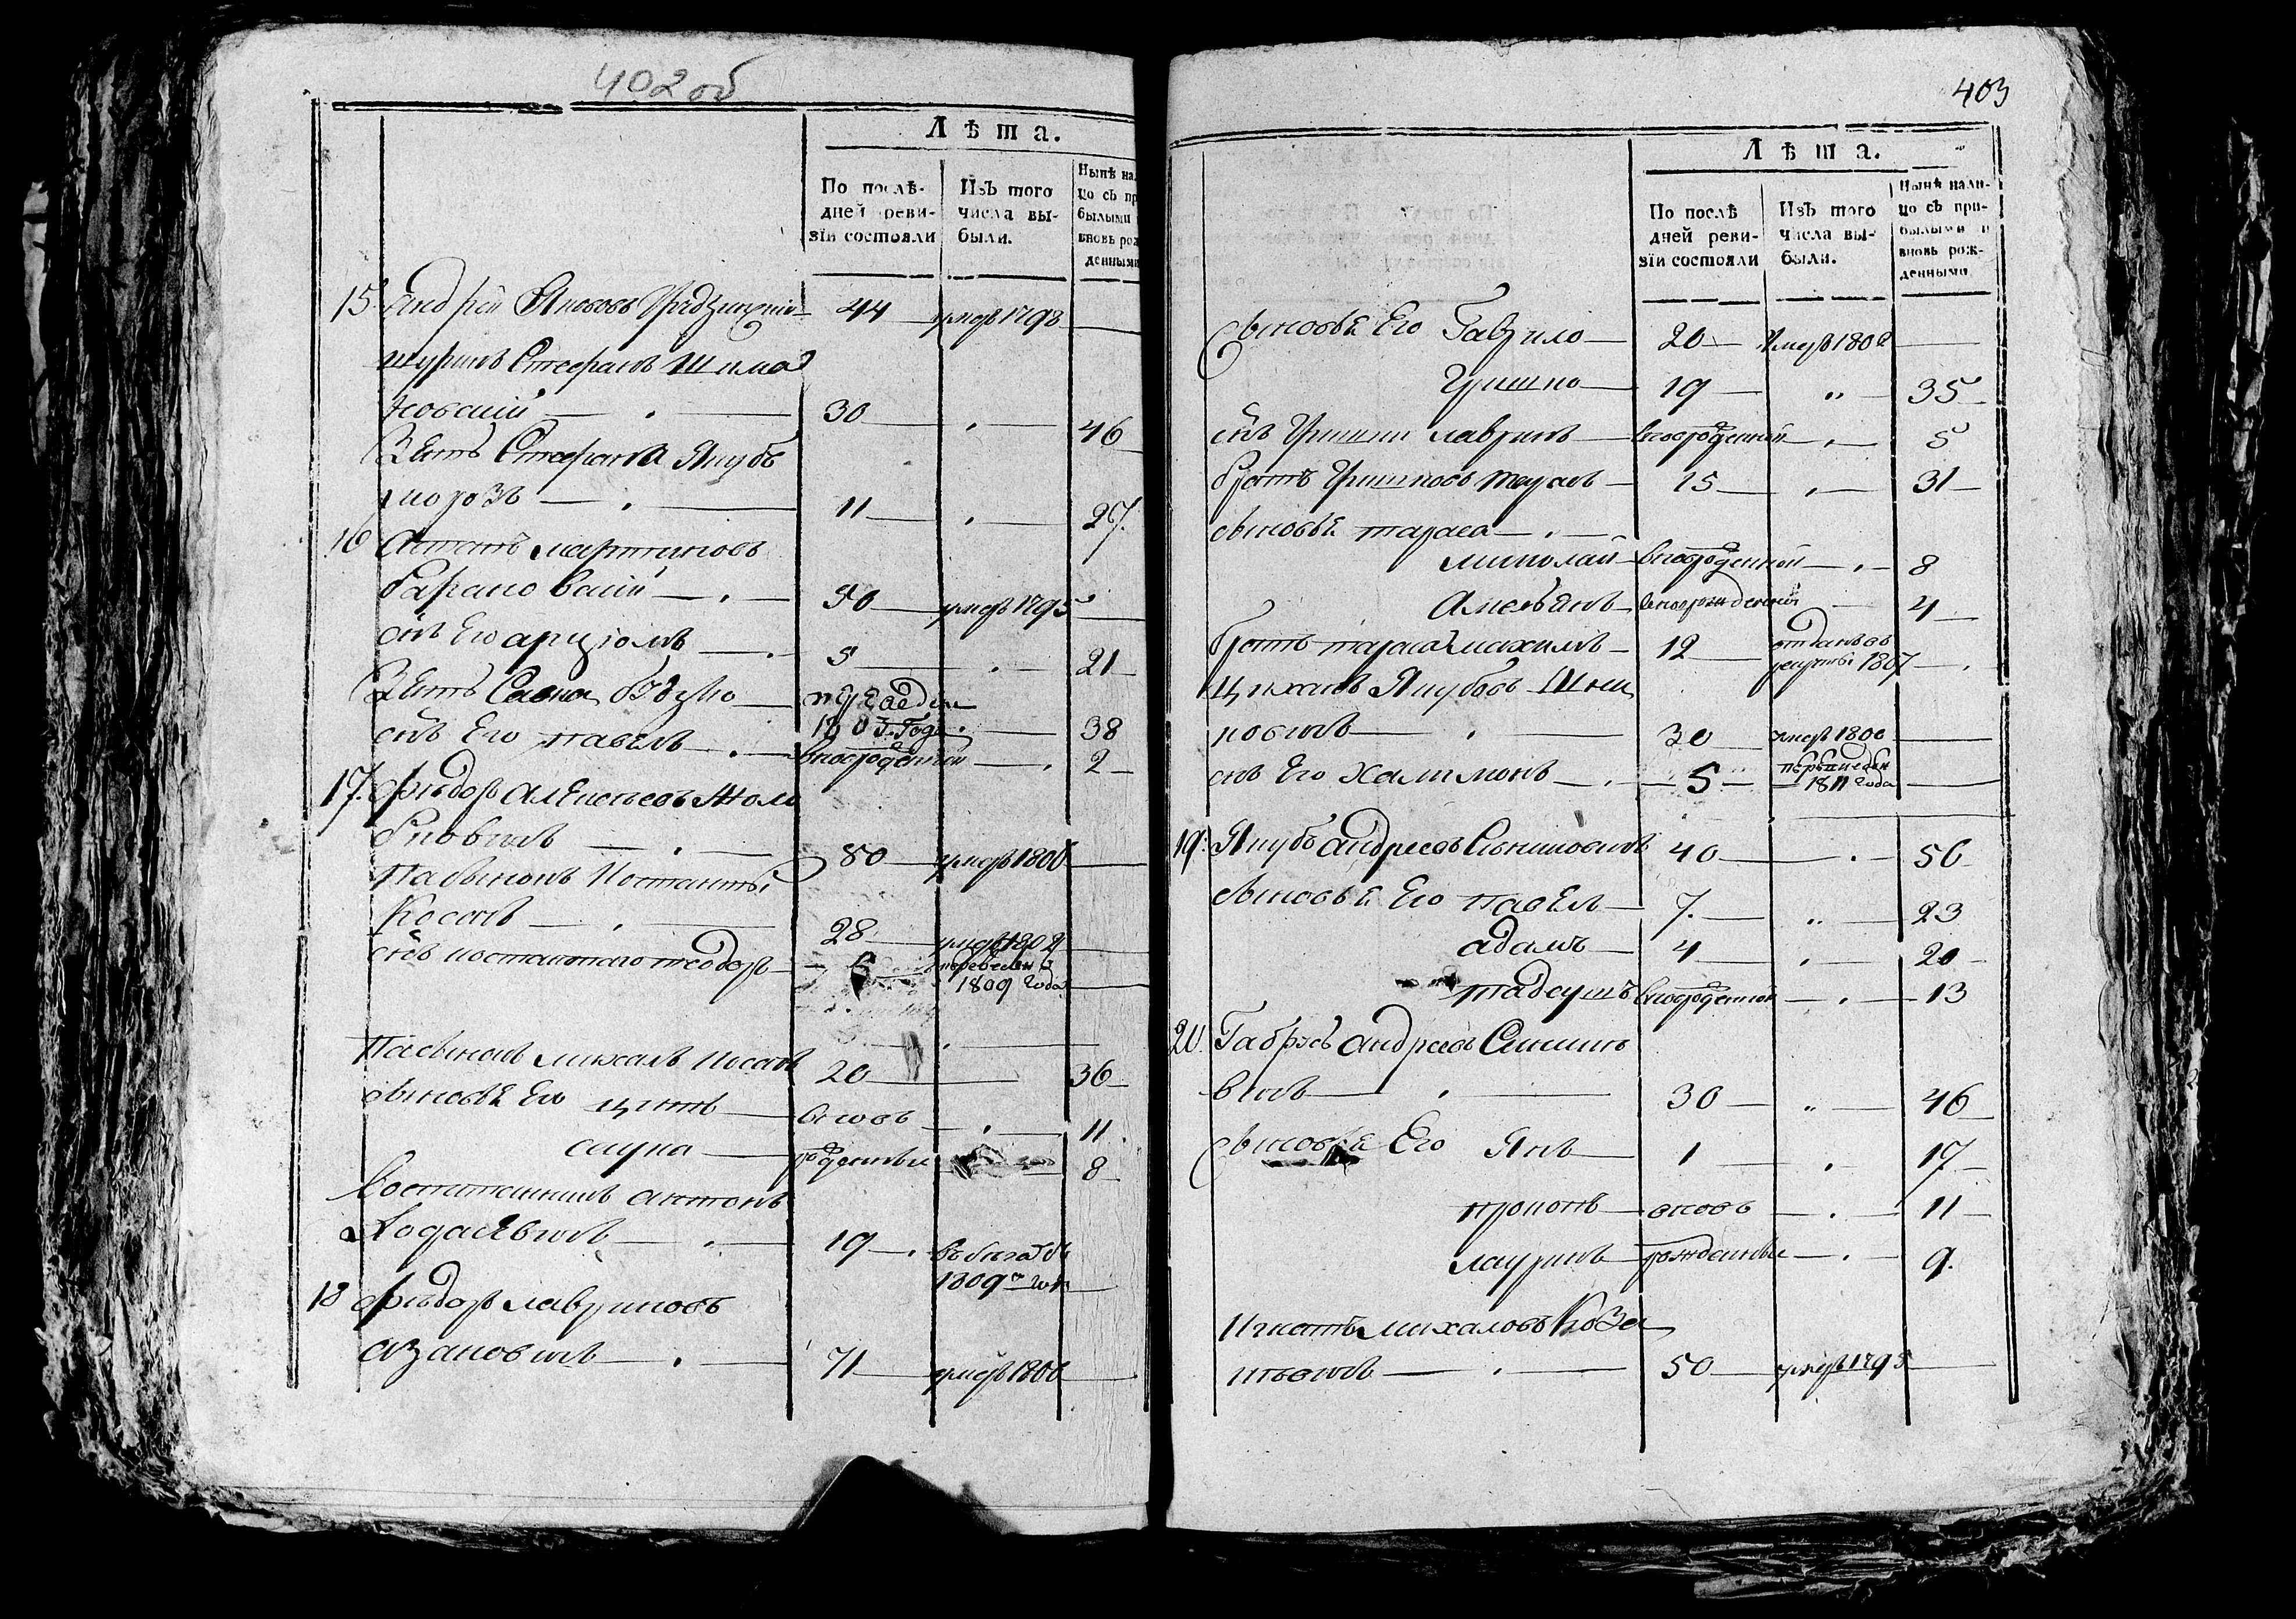 402 об
Лѣта.
По послѣ-
дней реви-
зіи состояли
Изъ того
числа вы-
были.
Нынѣ на
цо съ пр
былыми
вновь рож
денными
15 Андрей Якововъ 44 умеръ 1798
шуринъ Стефанъ Шима
новский 30 46
Зять Стефана Якубъ
морозъ 11 27.
16 мартиновъ
барановский 50 умеръ 1795
снъ Его арціомъ 5 21
Зять Савка
1803 Года 38
снъ Его павелъ вновьрожденный 2
17. фѣдоръ алексѣевъ
80 умеръ 1800
Пасынокъ Костанты
Косачъ 28 умеръ 1802
снъ костантаго теодоръ 6 переведен
1809 года
Пасынокъ михалъ 20 36
сыновья Его вновь 11.
рожденные 8
воспитанникъ антонъ
Ходасевичъ 19 въ бѣгахъ
1809го года
18 фѣдоръ лавриновъ
71 умеръ 1800
403
Лѣта.
По послѣ
дней реви-
зіи состояли
Изъ того
числа вы-
были.
Нынѣ нали-
цо съ при-
былыми и
вновь рож-
денными
Сыновья Его Гаврило 20 умеръ 1802
Гришко 19 35
снъ Гришки лавринъ вновьрожденный 5
братъ Гришковъ тарасъ 15 31
сыновья тараса
миколай вновьрожденной 8
Амельянъ вновьрожденный 4
братъ тараса михалъ 12 отданъ въ
рекруты 1807
Якубовъ
ковичъ 30 умеръ 1800
снъ Его Халимонъ 5
1811 года
19. Якубъ андреевъ 40 56
сыновья Его павелъ 7. 23
адамъ 4 20
тадеушъ вновьрожденный 13
20. Габрысь андреевъ
вичъ 30 46
Сыновья Его Янъ 1 17
прокопъ вновь 11
лавринъ рожденные 9.
Игнатъ михаловъ
50 умеръ 1795